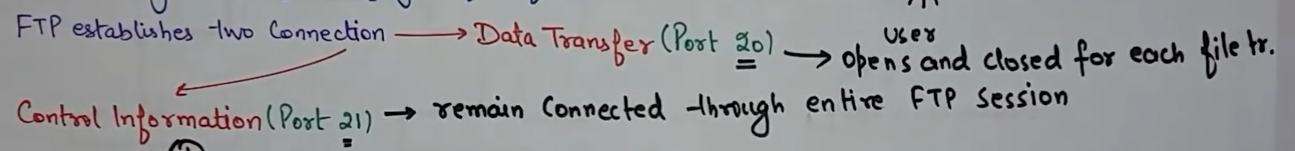 FTP establishes two Connection → Data Transfer (Port 20) → opens and closed for each file tr.
user
Control Information (Port 21) → remain Connected through entire FTP Session